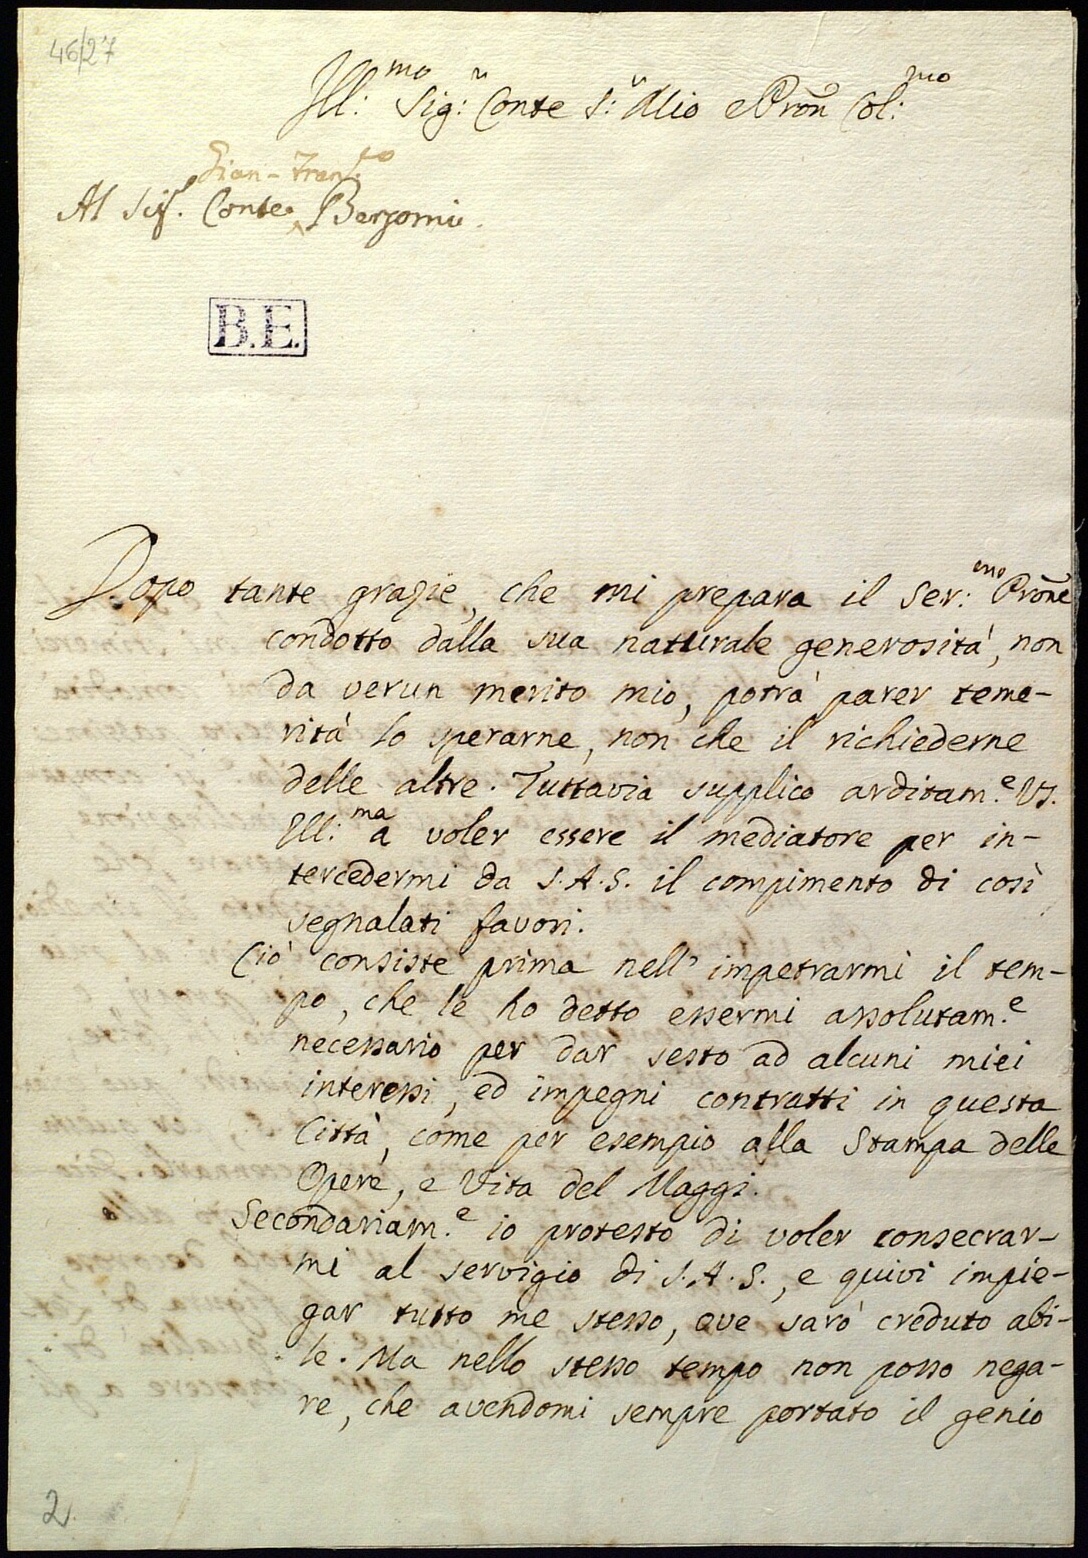 46/27
Ill:mo Sig:r Conte S:r Mio e Pron Col:mo
Gian-Fran.co
Al Sig.r Conte Bergomi.
B.E.
Dopo tante grazie, che mi prepara il Ser:mo Prone
condotto dalla sua naturale generosità, non
da verun merito mio, potrà parer teme-
rità lo sperarne, non che il richiederne
delle altre. Tuttavia supplico arditam.e VS.
Ill:ma a voler essere il mediatore per in-
tercedermi da S.A.S. il compimento di così
segnalati favori.
Ciò consiste prima nell' impetrarmi il tem-
po, che le ho detto essermi assolutam.e
necessario per dar sesto ad alcuni miei
interessi, ed impegni contratti in questa
Città, come per esempio alla Stampa delle
Opere, e Vita del Maggi.
Secondariam.e io protesto di voler consecrar-
mi al servigio di S.A.S., e quivi impie-
gar tutto me stesso, ove sarò creduto abi-
le. Ma nello stesso tempo non posso nega-
re, che avendomi sempre portato il genio
2.